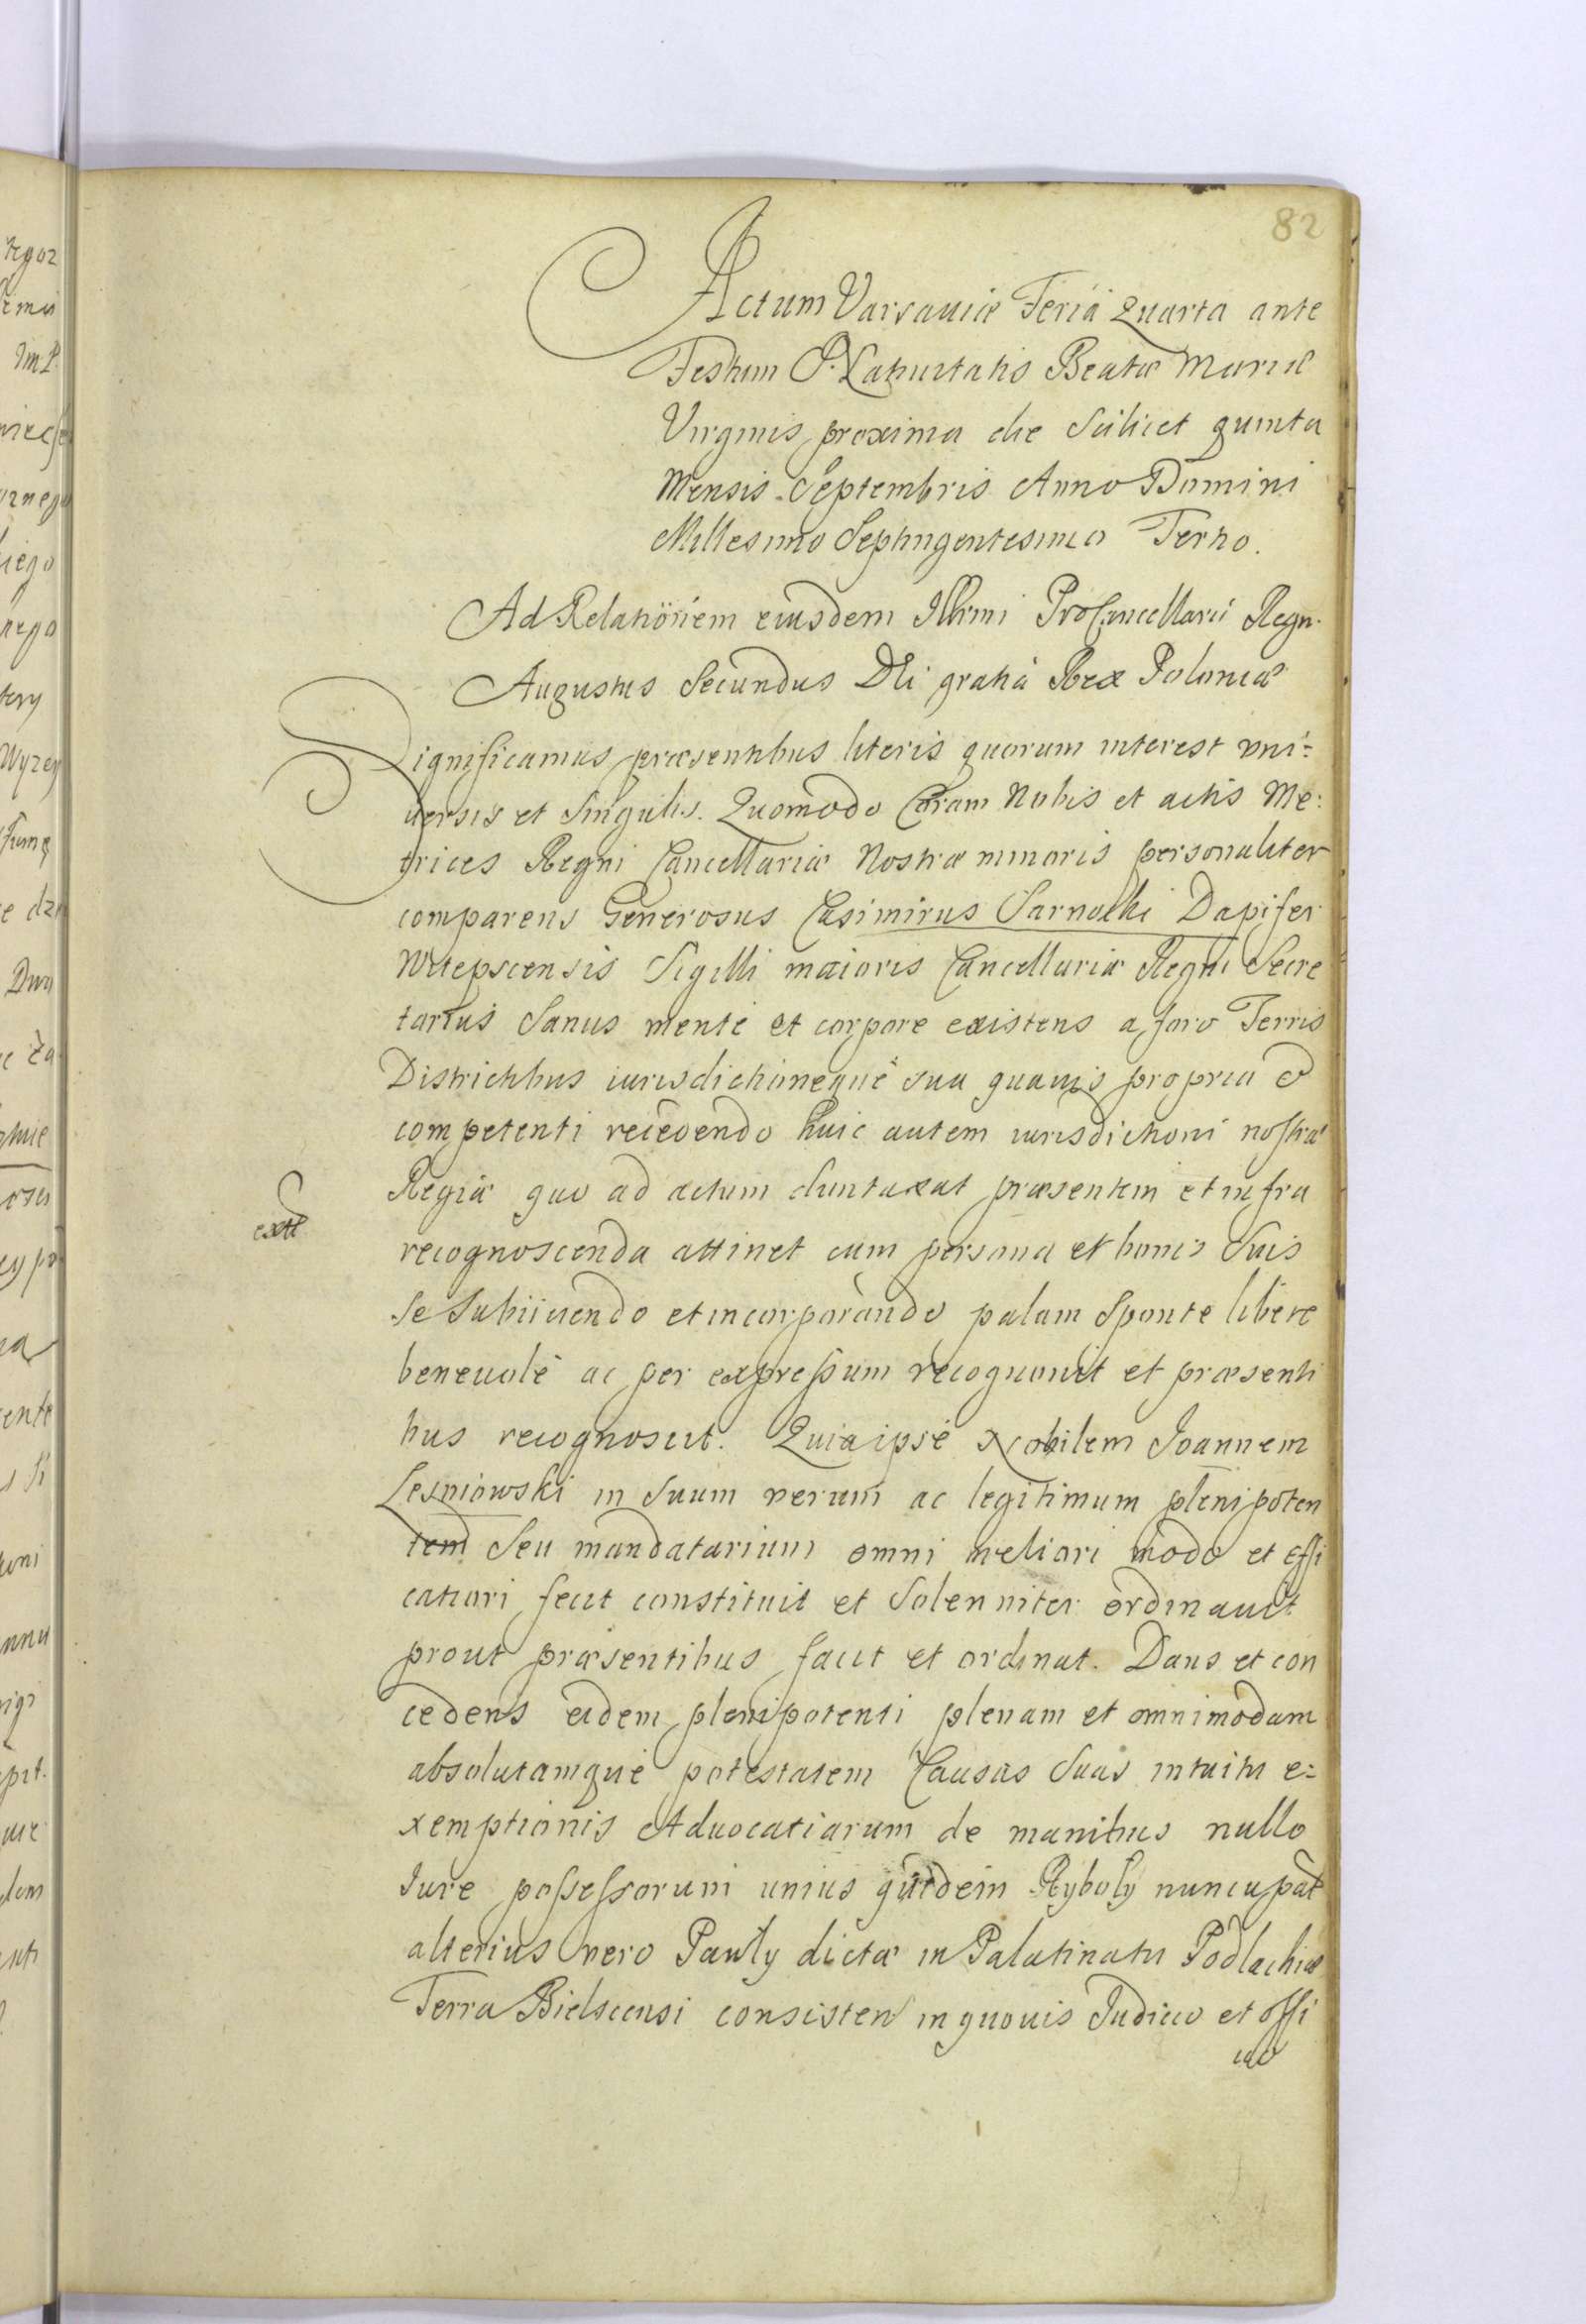 82
Actum Varsaviæ Feriâ Quarta ante
Festum Nativitatis Beatæ Mariæ
Virginis proxima die Scilicet quinta
Mensis Septembris Anno Domini
Millesimo Septingentesimo Tertio.
Ad Relationem eiusdem Illrmi ProCancellarii Regn.
Augustus Secundus Dei gratia Rex Poloniæ
Significamus præsentibus literis quorum interest vni-
uersis et Singulis. Quomodo Coram Nobis et actis Me-
trices Regni Cancellariæ Nostræ minoris personaliter
comparens Generosus Casimirus Sarnacki Dapifer
Witepscensis Sigilli maioris Cancellariæ Regni Secre
tarius Sanus mente et corpore existens a foro Terris
Districtibus iurisdictioneque sua quauis propria et
competenti recedendo huic autem iurisdictioni nostræ
Regiæ quo ad actum duntaxat præsentem et infra
extt
recognoscenda attinet cum persona et bonis Suis
Se Subiiciendo et incorporando palam Sponte libere
beneuolè ac per expressum recognouit et præsenti
bus recognoscit. Quia ipse Nobilem Joannem
Lesniowski in Suum verum ac legitimum plenipoten
tem Seu mandatarium omni meliori modo et effi
catiori fecit constituit et Solenniter ordinauit
prout præsentibus facit et ordinat. Dans et con
cedens eidem plenipotenti plenam et omnimodam
absolutamque potestatem Causas Suas intuitu e-
xemptionis Aduocatiarum de manibus nullo
Jure possessorum unius quidem Ryboly nuncupat
alterius vero Pauly dictæ in Palatinatu Podlachiæ
Terra Bielscensi consisten in quouis Judicio et offi
cio